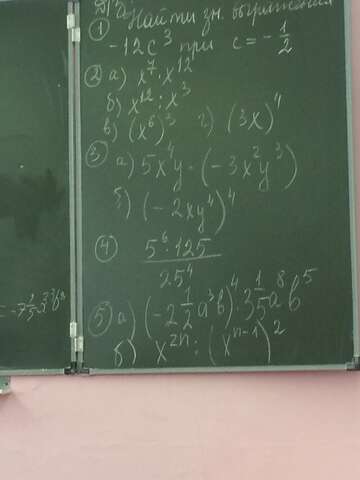 Д/З
Найти зн. выражения
① -12c³ при c = -1/2
② а) x⁷ · x¹²
б) x¹² : x³
в) (x⁶)³ г) (3x)⁴
③ а) 5x⁴y · (-3x²y³)
б) (-2xy⁴)⁴
④ 5⁶ · 125
25⁴
⑤ а) (-2 1/2 a³b)⁴ · 3 1/5 a⁸b⁵
б) x²ⁿ : (xⁿ⁻¹)²